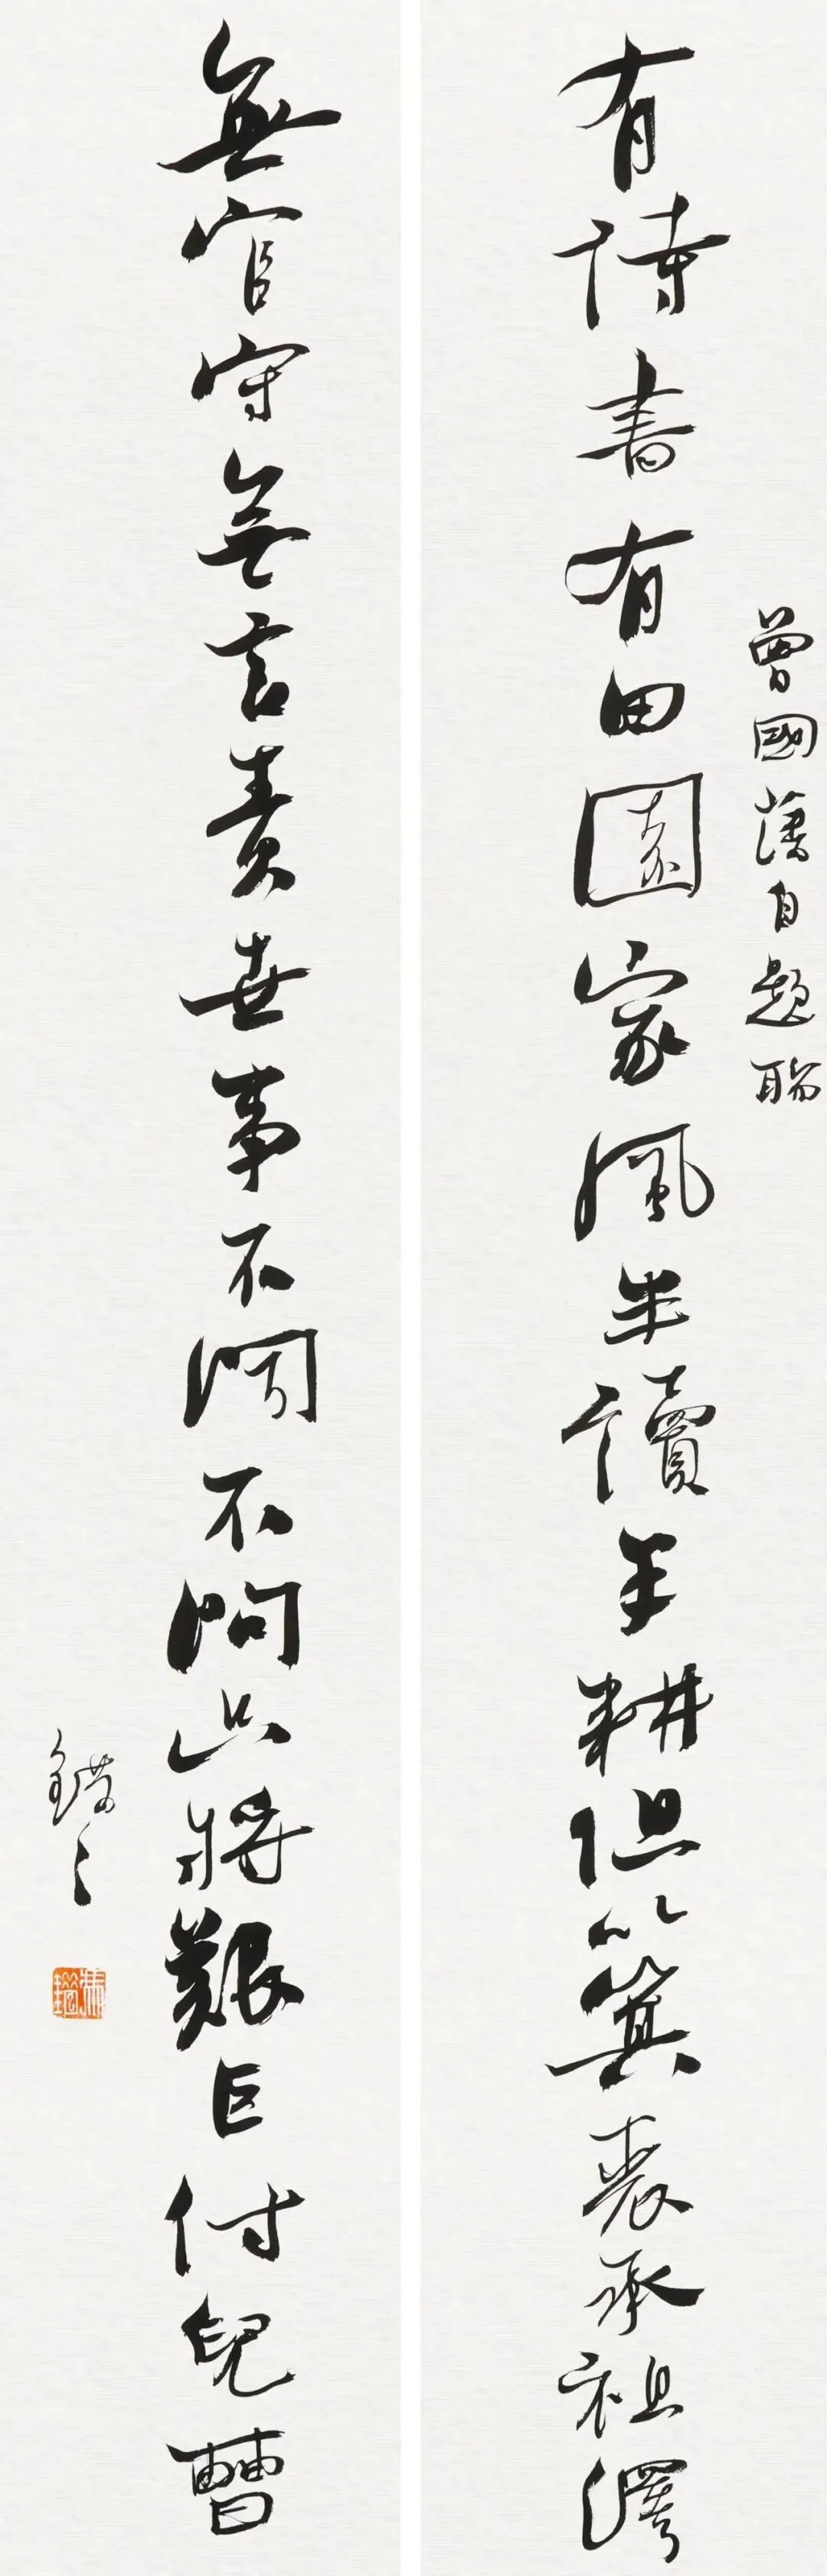 曾國藩自題聯
有詩書有田園家風半讀半耕但以箕裘承祖澤
無官守無言責世事不聞不問只將艱巨付兒曹
錯之